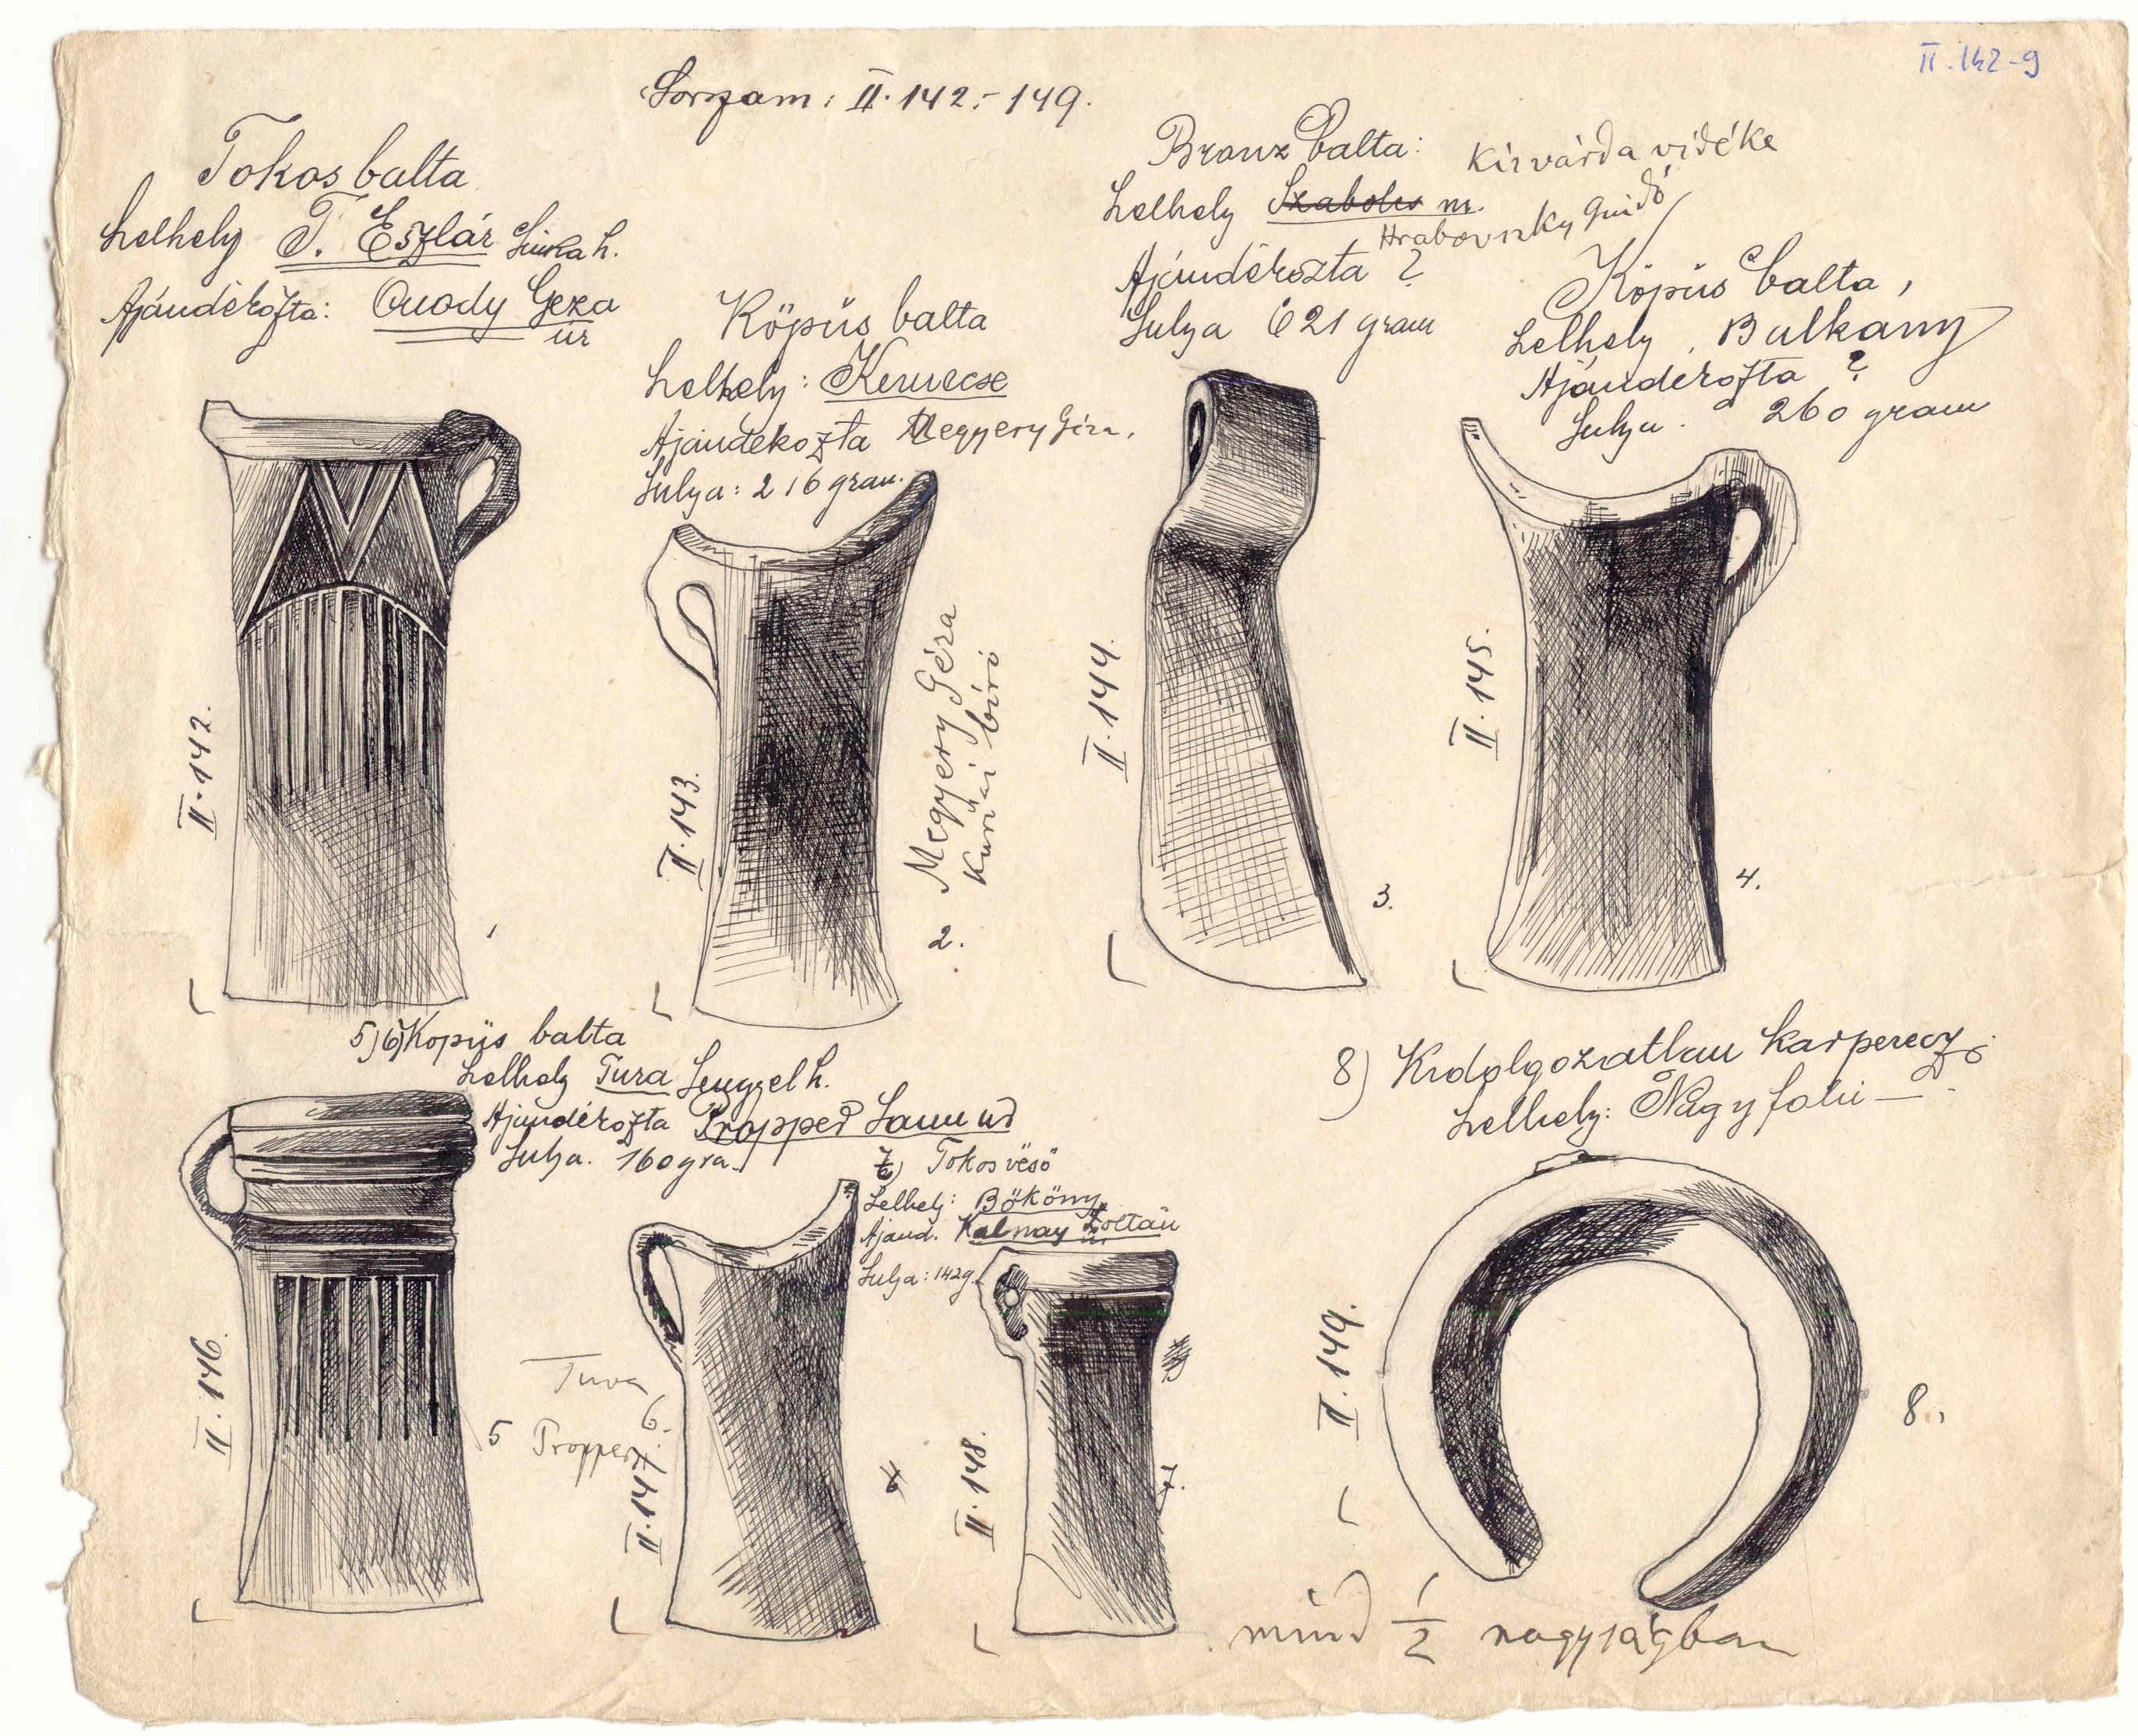 II.142-9
Sorszam: II.142.-149.
Tokos balta
Lelhely T. Eszlár h.
Ajándékozta: Onody Geza
úr
Köpüs balta
Lelhely: Kemecse
Ajándékozta Megyery Géza.
Sulya: 216 gram.
Bronz balta: Kisvárda vidéke
Lelhely Szabolcs m.
Hrabovszky Guidó
Ajándékozta ?
Sulya 621 gram
Köpüs balta,
Lelhely. Balkany
Ajándékozta ?
Sulya. 260 gram
II.142.
1
II.143.
Megyery Géza
kuriai biró
2.
II.144.
3.
II.145.
4.
5) 6) Köpüs balta
Lelhely Tura Lengyel h.
Ajándékozta Propper Samu úr
Sulya. 160 gra.
7) Tokos véső
Lelhely: Bököny
Ajánd. Kalnay Zoltán
úr
Sulya: 142g
8) Kidolgozatlan karperecz
Lelhely: Nagyfalu
II.146.
5
Tura
Propper
6.
II.147.
II.148.
7.
II.149.
8.
mind 1/2 nagyságban